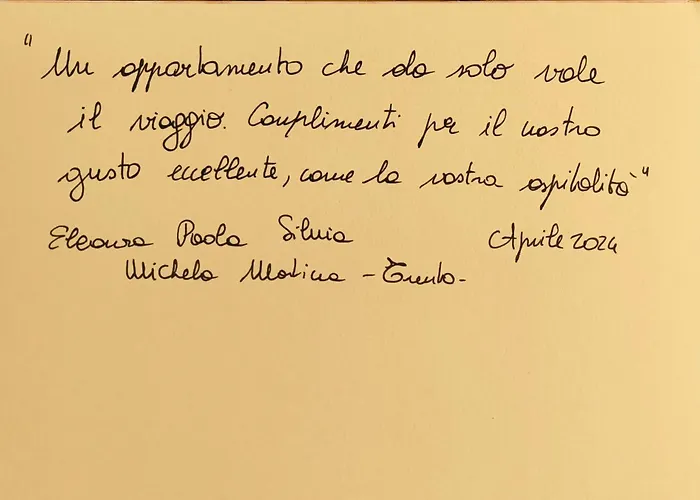 "Un appartamento che da solo vale
il viaggio. Complimenti per il vostro
gusto eccellente, come la vostra ospitalità"
Eleonora Paola Silvia Aprile 2024
Michela Martina - Trento -